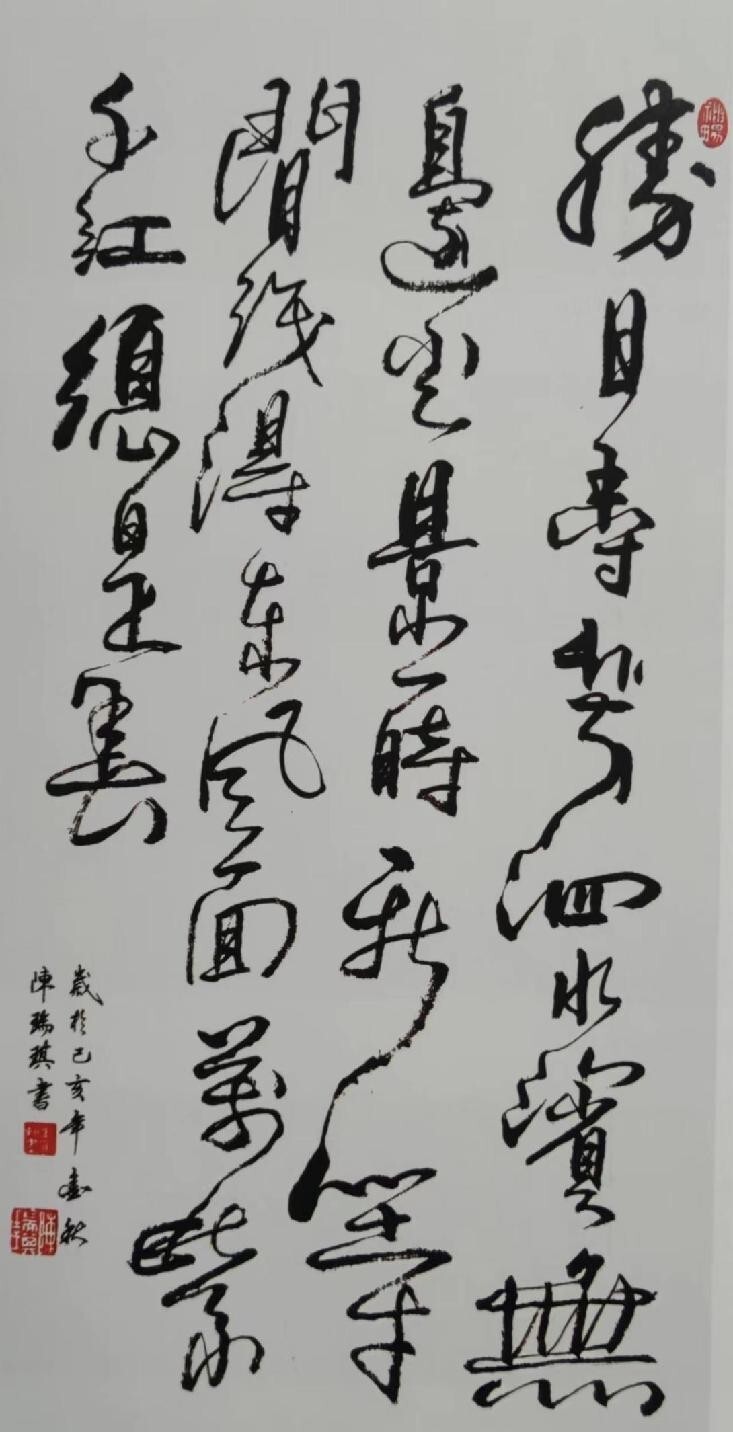 勝日尋芳泗水濱無
邊光景一時新等
閒識得東風面萬紫
千紅總是春
歲於己亥年秋
陳瑞琪書